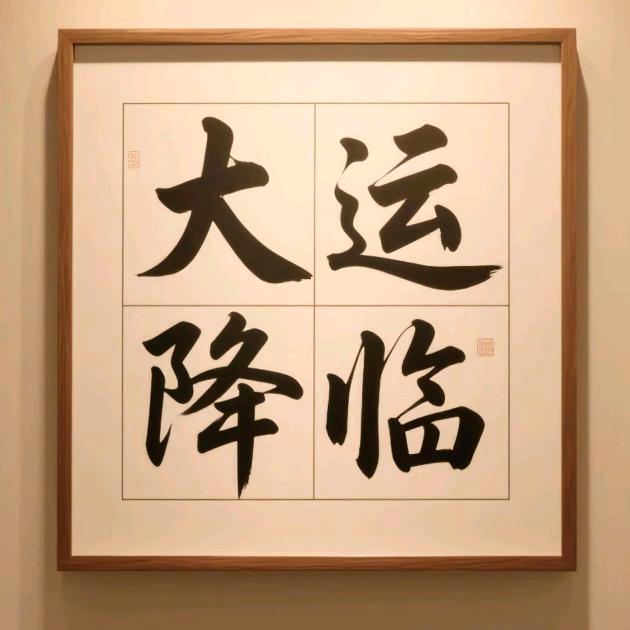 大运
降临